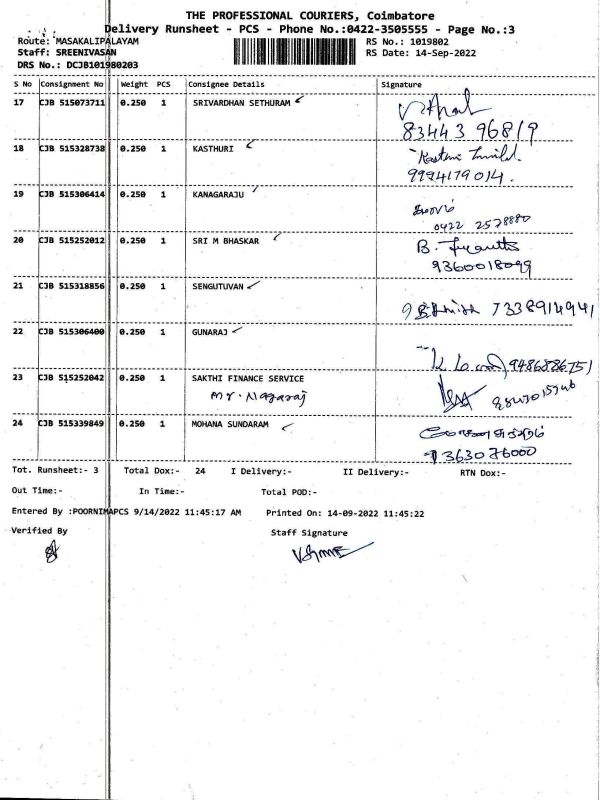 THE PROFESSIONAL COURIERS, Coimbatore
Delivery Runsheet - PCS - Phone No.:0422-3505555 - Page No.:3
Route: MASAKALIPALAYAM RS No.: 1019802
Staff: SREENIVASAN RS Date: 14-Sep-2022
DRS No.: DCJB101980203
S No Consignment No Weight PCS Consignee Details Signature
17 CJB 515073711 0.250 1 SRIVARDHAN SETHURAM
83443 96819
18 CJB 515328738 0.250 1 KASTHURI
9994179014.
19 CJB 515306414 0.250 1 KANAGARAJU
0422 2578880
20 CJB 515252012 0.250 1 SRI M BHASKAR B.
9360018099
21 CJB 515318856 0.250 1 SENGUTUVAN
7338914941
22 CJB 515306400 0.250 1 GUNARAJ
9486886751
23 CJB 515252042 0.250 1 SAKTHI FINANCE SERVICE
Mr. Nagaraj
24 CJB 515339849 0.250 1 MOHANA SUNDARAM
9363076000
Tot. Runsheet:- 3 Total Dox:- 24 I Delivery:- II Delivery:- RTN Dox:-
Out Time:- In Time:- Total POD:-
Entered By :POORNIMAPCS 9/14/2022 11:45:17 AM Printed On: 14-09-2022 11:45:22
Verified By Staff Signature